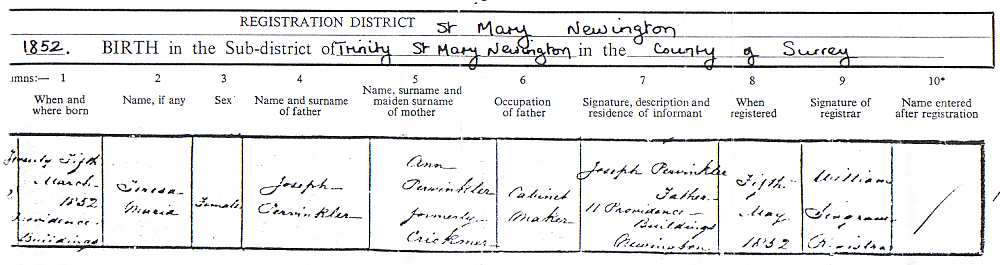 REGISTRATION DISTRICT St Mary Newington
1852. BIRTH in the Sub-district of Trinity St Mary Newington in the County of Surrey
mns:— 1 2 3 4 5 6 7 8 9 10*
When and where born
Name, if any
Sex
Name and surname of father
Name, surname and maiden surname of mother
Occupation of father
Signature, description and residence of informant
When registered
Signature of registrar
Name entered after registration
Twenty Fifth
March
1852
Providence
Buildings
Teresa
Maria
Female
Joseph
Perwinkler
Ann
Perwinkler
formerly
Crickmer
Cabinet
Maker
Joseph Perwinkler
Father
11 Providence
Buildings
Newington
Fifth
May
1852
William
Registrar